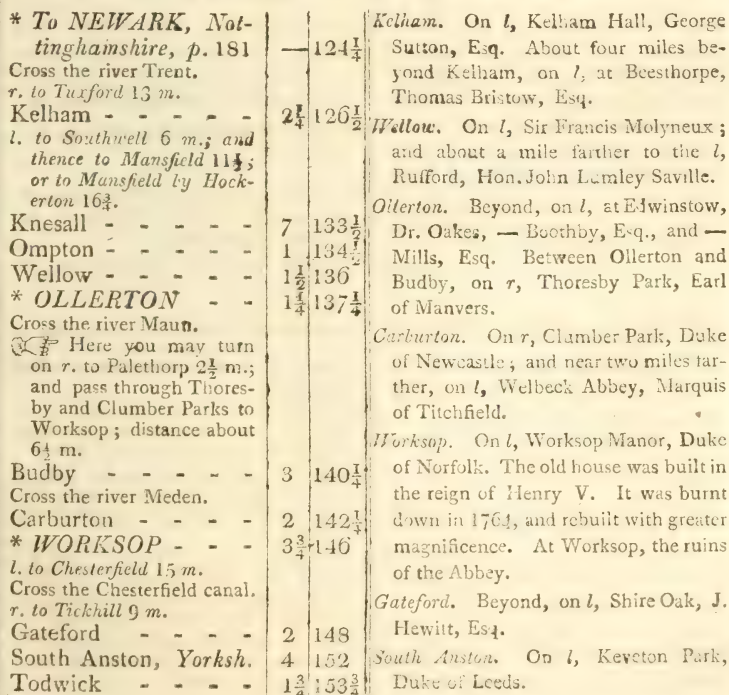 * To NEWARK, Not-
tinghamshire, p. 181 — 124¼
Cross the river Trent.
r. to Tuxford 13 m.
Kelham - - - - - 2¼ 126½
l. to Southwell 6 m.; and
thence to Mansfield 11½;
or to Mansfield by Hock-
erton 16¾.
Knesall - - - - - 7 133½
Ompton - - - - - 1 134½
Wellow - - - - - 1½ 136
* OLLERTON - - 1¼ 137¼
Cross the river Maun.
☞ Here you may turn
on r. to Palethorp 2½ m.;
and pass through Thores-
by and Clumber Parks to
Worksop; distance about
6½ m.
Budby - - - - - 3 140¼
Cross the river Meden.
Carburton - - - - 2 142¼
* WORKSOP - - - 3¾ 146
l. to Chesterfield 15 m.
Cross the Chesterfield canal.
r. to Tickhill 9 m.
Gateford - - - - 2 148
South Anston, Yorksh. 4 152
Todwick - - - - 1¾ 153¾
Kelham. On l, Kelham Hall, George
Sutton, Esq. About four miles be-
yond Kelham, on l, at Beesthorpe,
Thomas Bristow, Esq.
Wellow. On l, Sir Francis Molyneux;
and about a mile farther to the l,
Rufford, Hon. John Lumley Saville.
Ollerton. Beyond, on l, at Edwinstow,
Dr. Oakes, — Boothby, Esq., and —
Mills, Esq. Between Ollerton and
Budby, on r, Thoresby Park, Earl
of Manvers.
Carburton. On r, Clumber Park, Duke
of Newcastle; and near two miles far-
ther, on l, Welbeck Abbey, Marquis
of Titchfield.
Worksop. On l, Worksop Manor, Duke
of Norfolk. The old house was built in
the reign of Henry V. It was burnt
down in 1764, and rebuilt with greater
magnificence. At Worksop, the ruins
of the Abbey.
Gateford. Beyond, on l, Shire Oak, J.
Hewitt, Esq.
South Anston. On l, Keveton Park,
Duke of Leeds.